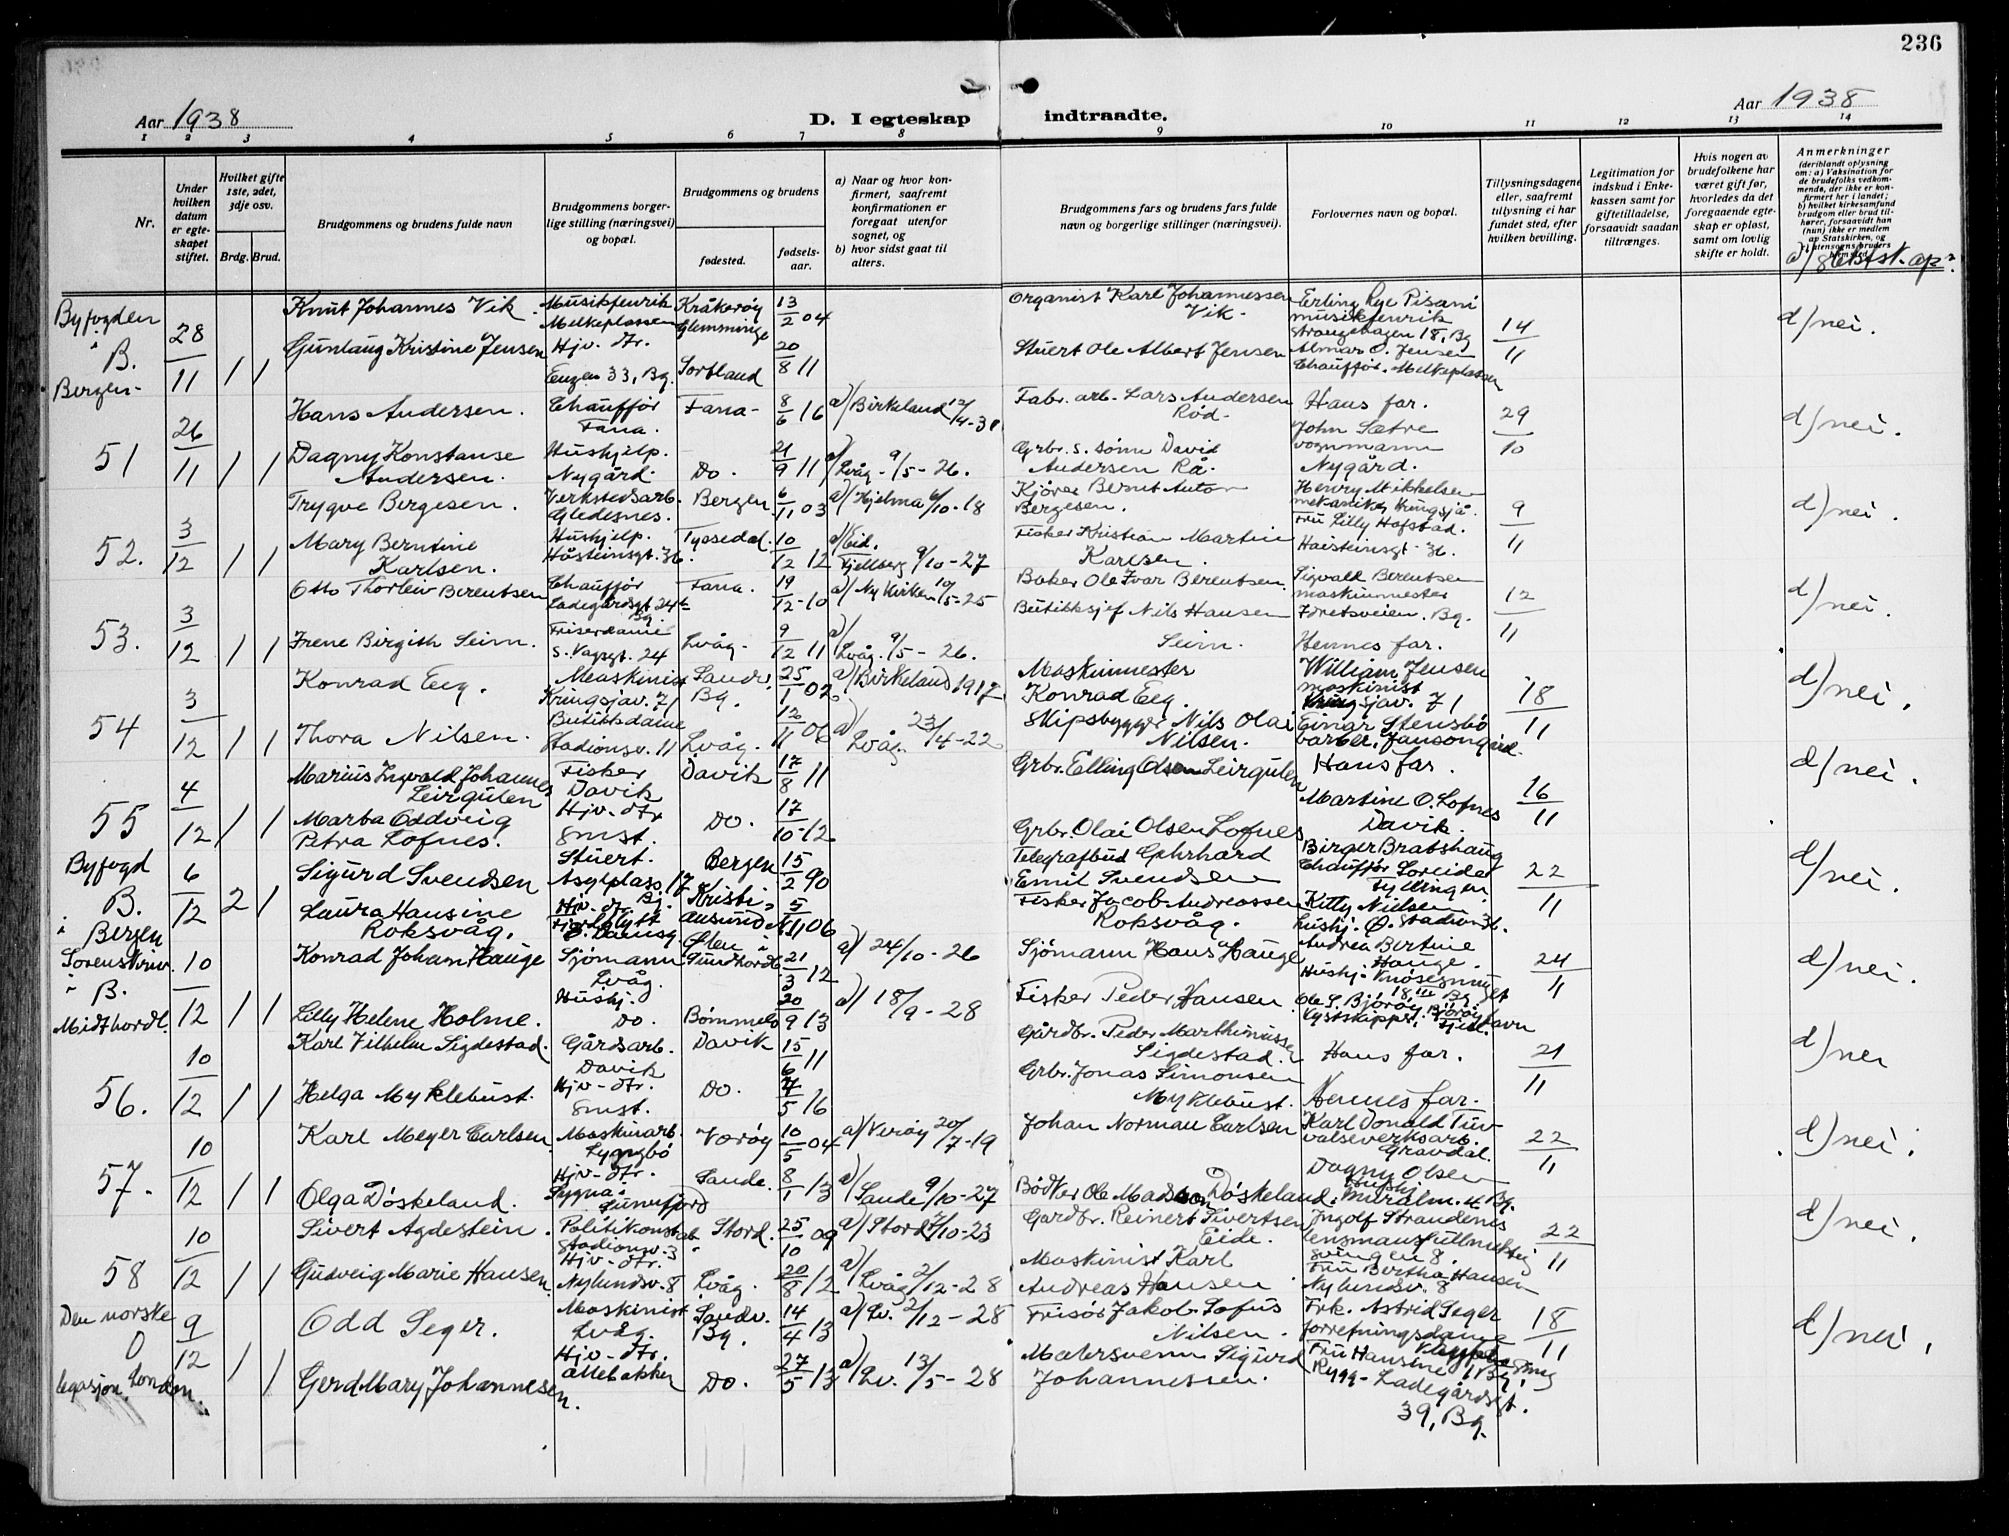 236
Aar 1938
D. I egteskap indtraadte.
Aar 1938
1 2 3 4 5 6 7 8 9 10 11 12 13 14
Nr.
Under hvilken datum er egteskapet stiftet.
Hvilket gifte 1ste, 2det, 3dje osv.
Brdg. Brud.
Brudgommens og brudens fulde navn
Brudgommens borgerlige stilling (næringsvei) og bopæl.
Brudgommens og brudens
fødested.
fødselsaar.
a) Naar og hvor konfirmert, saafremt konfirmationen er foregaat utenfor sognet, og
b) hvor sidst gaat til alters.
Brudgommens fars og brudens fars fulde navn og borgerlige stillinger (næringsvei).
Forlovernes navn og bopæl.
Tillysningsdagene eller, saafremt tillysning ei har fundet sted, efter hvilken bevilling.
Legitimation for indskud i Enkekassen samt for giftetilladelse, forsaavidt saadan tiltrænges.
Hvis nogen av brudefolkene har været gift før, hvorledes da det foregaaende egteskap er opløst, samt om lovlig skifte er holdt.
Anmerkninger
(deriblandt oplysning om: a) Vaksination for de brudefolks vedkommende, der ikke er konfirmert her i landet; b) hvilket kirkesamfund brudgom eller brud tilhører, forsaavidt han (hun) ikke er medlem av Statskirken, og
Byfogden i B. Bergen 28/11 1 1
Knut Johannes Vik. Musikfenrik Melkeplassen Kråkerøy Glemminge 13/2 04 Organist Karl Johannessen Vik. Erling Rye Pisani musikfenrik Strangehagen 18, Bg 14/11 d) nei.
Gunlaug Kristine Jensen Hjv. dtr. Engen 33, Bg. Sortland 20/8 11 Stuert Ole Albert Jensen Almar O. Jensen Chauffør. Melkeplassen
51 26/11 1 1
Hans Andersen. Chauffør Fana. Fana - 8/6 16 a) Birkeland 12/4-31 Fabr. arb. Lars Andersen Rød. Hans far. 29/10 d) nei.
Dagny Konstanse Andersen. Hushjelp. Nygård. Do. 21/9 11 a) Lvåg - 9/5-26. Grbr. s. sønn David Andersen Rå. John Sætre vognmann Nygård.
52. 3/12 1 1
Trygve Bergesen. Verkstedsarb. Gledesnes. Bergen 6/11 03 a) Hjelma 6/10-18 Kjører Bernt Anton Bergesen. Henry Mikkelsen mekaniker Kringsjå. 9/11 d) nei.
Mary Berntine Karlsen. Hushjelp. Håsteinsgt. 36. Tyssedal. 10/12 12 a) Eid. Fjellberg 9/10-27 Fisker Kristian Martin Karlsen. Fru Lilly Hofstad. Haisteinsgt. 36.
53. 3/12 1 1
Otto Thorleiv Berentsen Chauffør Ladegårdsgt 24b Bg. Fana. 19/12-10 a) Ny Kirken 10/5-25 Baker Ole Ivar Berentsen. Sigvald Berentsen maskinmester Idretsveien. Bg. 12/11 d) nei.
Irene Birgith Seim. Friserdame S. Vagsgt. 24 Lvåg. 9/12 11 a) Lvåg. 9/5-26. Butikksjef Nils Hansen Seim. Hennes far.
54 3/12 1 1
Konrad Eeg. Maskinist Kringsjav. 71 Sandv. Bg. 25/1 02 a) Birkeland 1917 Maskinmester Konrad Eeg. William Jensen maskinist Kringsjav. 71 18/11 d) nei.
Thora Nilsen. Butikkdame Stadionsv. 11 Lvåg. 12/11 06 a) Lvåg. 23/4-22 Skipsbygger Nils Olai Nilsen. Einar Stensbö barber. Jansongård.
55 4/12 1 1
Marius Ingvald Johannes Leirgulen Fisker Davik Davik 17/8 11 Grbr. Elling Olsen Leirgulen Hans far. 16/11 d) nei.
Marta Oddveig Petra Lofnes. Hjv. dtr smst. Do. 17/10-12 Grbr. Olai Olsen Lofnes Martine O. Lofnes Davik.
Byfogd B. i Bergen 6/12 2 1
Sigurd Svendsen Stuert. Asylplass 17 Bj. Bergen 15/2 90 Telegrafbud Gehrhard Emil Svendsen Birger Bratshaug Chauffør Soreide Fyllingen 22/11 d) nei.
Laura Hansine Roksvåg. Hjv. dtr. Kristiansund N. 5/11 06 Fisker Jacob Andreassen Roksvåg. Kitty Nielsen hushj. Ø. Stadion 36.
Sorenskriv. i B. Midthordl. 10/12 1 1
Konrad Johan Hauge Sjömann Lvåg. Ølen i Sundhordl. 21/3 12 a) 24/10-26 Sjömann Hans Hauge Andrea Bertine Hauge. Hushj. Knøsesmuget 18, III Bg 24/11 d) nei.
Lilly Helene Holme. Hushj. Do. Bømmelo 20/9 13 a) 18/9-28 Fisker Peder Hansen Ole S. Bjørøy, Bjørøyhavn Kystskipper, Fjell.
56. 10/12 1 1
Karl Vilhelm Sigdestad. Gårdsarb. Davik Davik 15/6 11 Gårdbr. Peder Marthinussen Sigdestad. Hans far. 21/11 d) nei
Helga Myklebust. Hjv-dtr. smst. Do. 4/5 16 Grbr. Jonas Simonsen Myklebust. Hennes far.
57. 10/12 1 1
Karl Meyer Carlsen Maskinarb. Lyngbö Værøy 10/5 04 a) Værøy 20/7-19 Johan Norman Carlsen Karl Donald Tuv valseverksarb. Gravdal. 22/11 d) nei.
Olga Døskeland. Hjv-dtr. Sygna. Sande. 8/1 13 a) Sande 9/10-27 Bødker Ole Madsen Døskeland. Dagny Olsen Hushj. Muralm. 4 Bg.
58 10/12 1 1
Sivert Agdestein. Politikonstab. Stadionv. 3 Stord. 25/10 09 a) Stord 7/10-23 Gardbr. Reinert Sivertsen Eide. Ingolf Strandenes lensmansfullmektig svingen 8. 22/11 d) nei.
Gudveig Marie Hansen Hjv-dtr. Nylundsv. 8 Lvåg. 20/8 12 a) Lvåg 2/12-28 Maskinist Karl Andreas Hansen Fru Bertha Hansen Nylundsv. 8
Den norske legasjon London. 9/12 1 1
Odd Seger. Maskinist Lvåg. Sandv. Bg. 14/4 13 a) Lv. 2/12-28 Frisør Jakob Sofus Nilsen. Frk. Astrid Seger forretningsdame 18/11 d) nei.
Gerd Mary Johannesen. Hjv-dtr. Ollebakken Do. 27/5 13 a) Lv. 13/5-28 Malersvenn Sigurd Johannessen. Fru Hansine Rygg - Ladegårdsgt. 39, Bg.